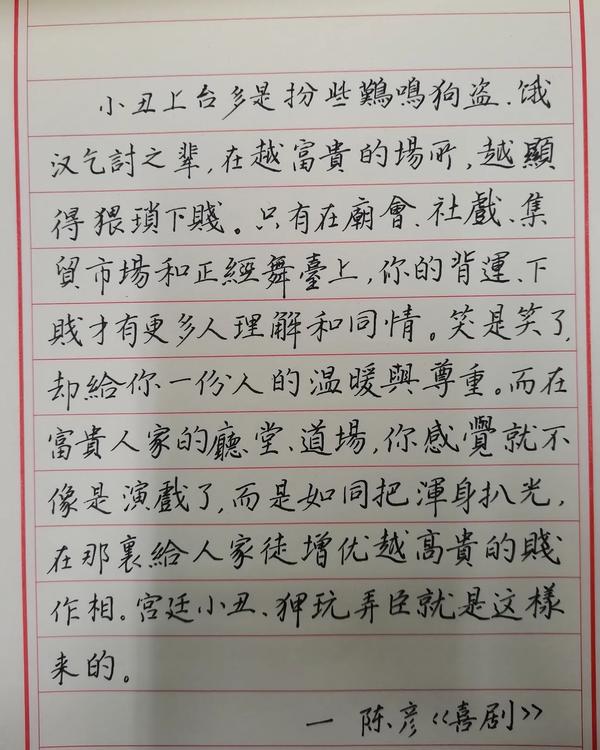 小丑上台多是扮些鷄鳴狗盗、饿
汉乞討之輩,在越富貴的場所,越顯
得猥瑣下賤。只有在廟會、社戲、集
貿市場和正經舞臺上,你的背運、下
賤才有更多人理解和同情。笑是笑了,
却給你一份人的温暖與尊重。而在
富貴人家的廳堂、道場,你感覺就不
像是演戲了,而是如同把渾身扒光,
在那裏給人家徒增优越高貴的賤
作相。宫廷小丑、狎玩弄臣就是这樣
来的。
— 陈彦《喜剧》